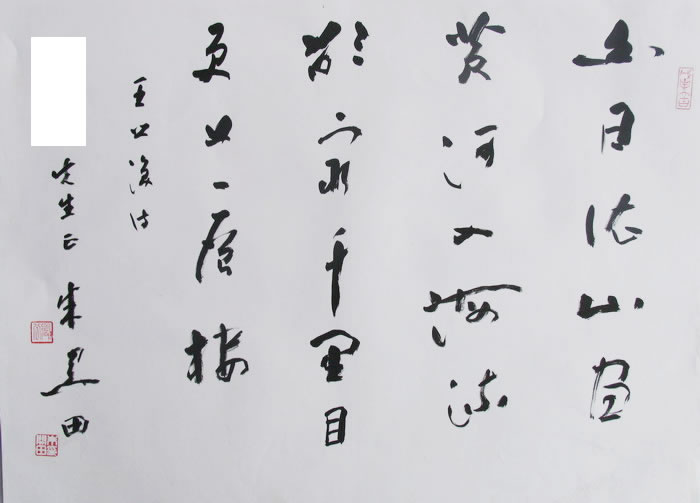 白日依山尽
黄河入海流
欲穷千里目
更上一层楼
王之涣诗
先生正 朱 田